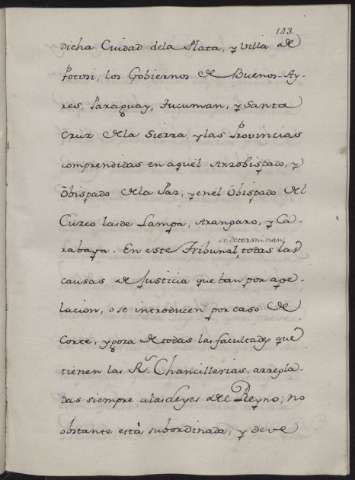 183
dicha Ciudad dela Plata, y Villa de
Potosi, los Gobiernos de Buenos-Ay-
res, Paraguay, Tucuman, y Santa
Cruz de la Sierra, y las Provincias
comprendidas en aquel Arzobispado, y
Obispado de la Paz, y en el Obispado del
Cuzco las de Lampa, Asangaro, y Ca-
rabaya. En este Tribunal se determinan todas las
causas de Justicia que ban por ape-
lacion, o se introducen por caso de
Corte, y goza de todas las facultades que
tienen las Rs. Chancillerias, arregla-
das siempre alas Leyes del Reyno; no
obstante está subordinada, y deve